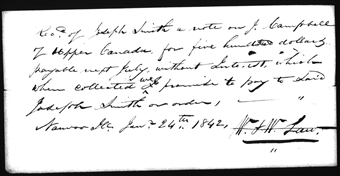 Rec'd of Joseph Smith a note on J. Campbell
of Upper Canada, for five hundred dollars
payable next July, without Interest, which
when collected we promise to pay to said
Joseph Smith or order,
Nauvoo Ill. Jany. 24th, 1842, Wm. & W. Law